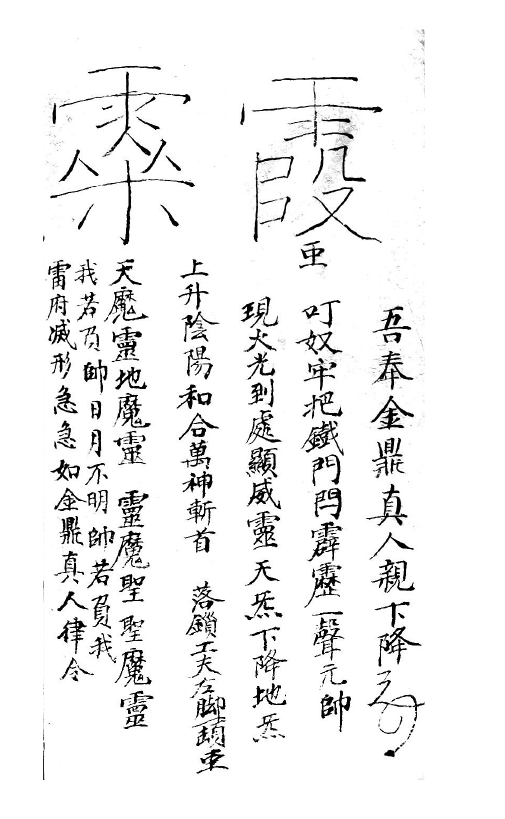 吾奉金鼎真人親下降
叮奴牢把鐵門閂霹靂一聲元帥
現火光到處顯威靈天炁下降地炁
上升陰陽和合萬神斬首 落鎖工夫左脚頓
天魔靈地魔靈 靈魔聖聖魔靈
我若負帥日月不明帥若負我
雷府滅形急急如金鼎真人律令